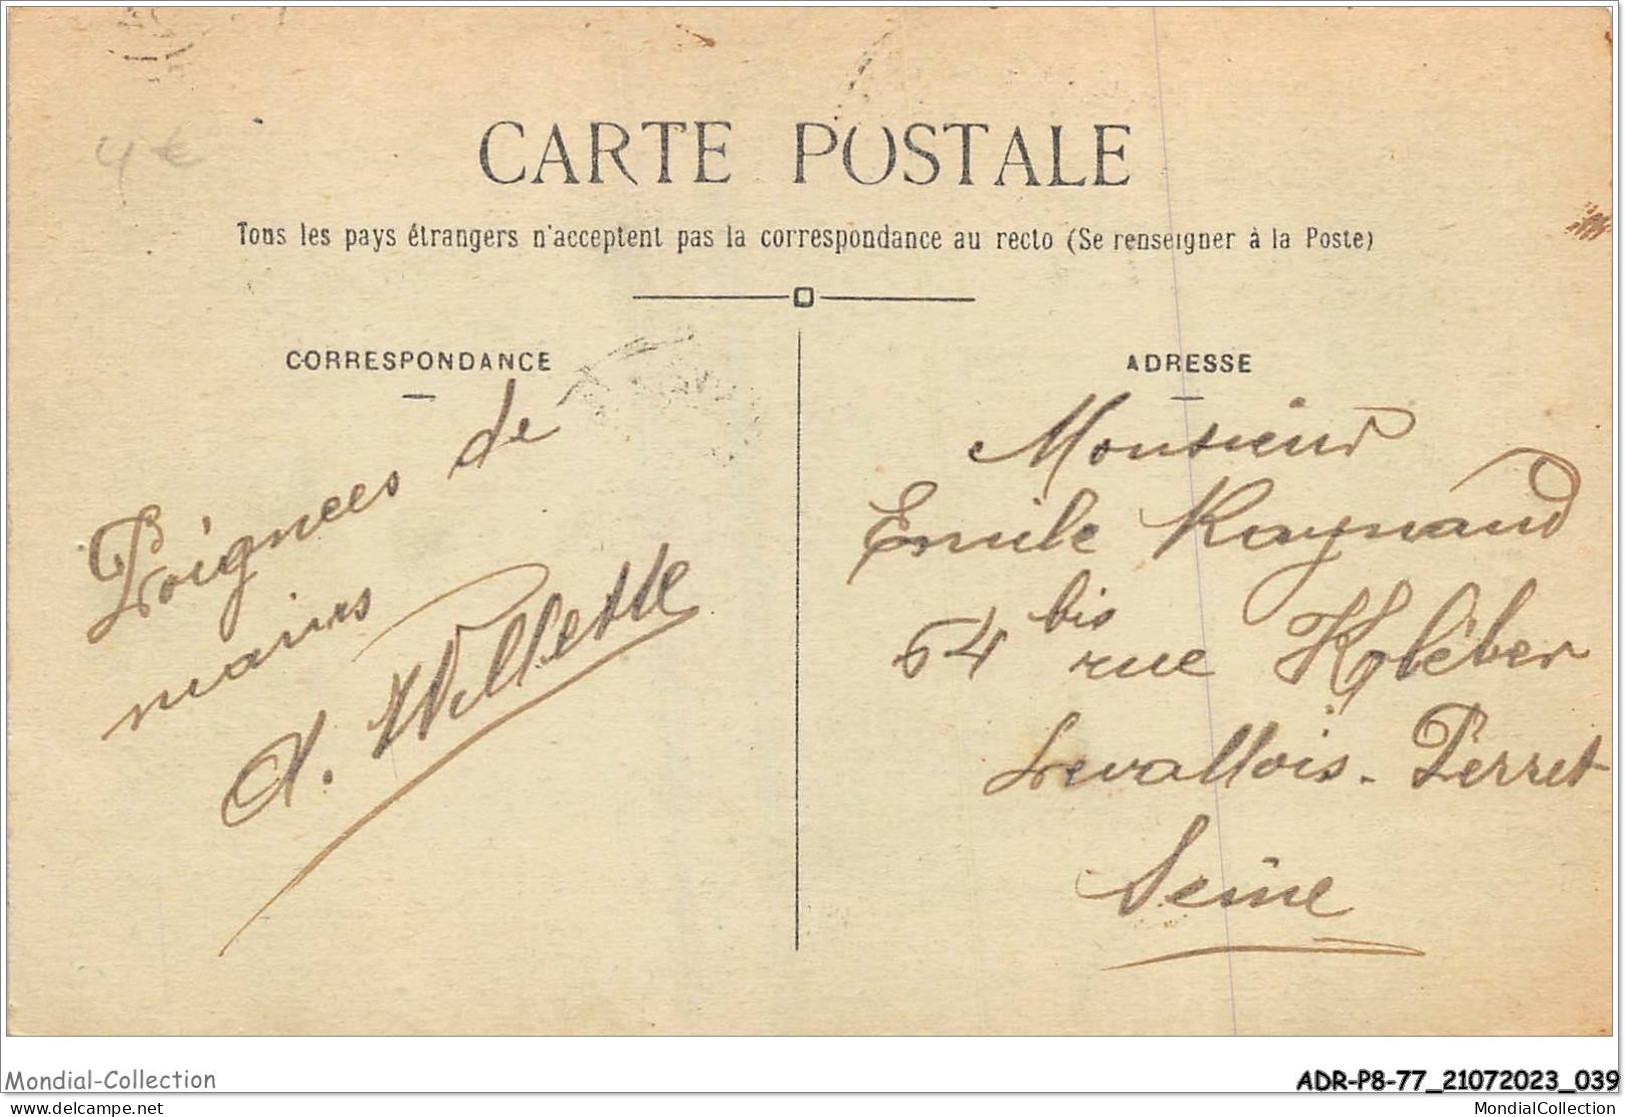 4€
CARTE POSTALE
Tous les pays étrangers n'acceptent pas la correspondance au recto (Se renseigner à la Poste)
CORRESPONDANCE
Poignees de
mains
A. Willette
ADRESSE
Monsieur
Emile Raynaud
54 bis rue Kléber
Levallois-Perret
Seine
Mondial-Collection
delcampe.net
ADR-P8-77_21072023_039
MondialCollection